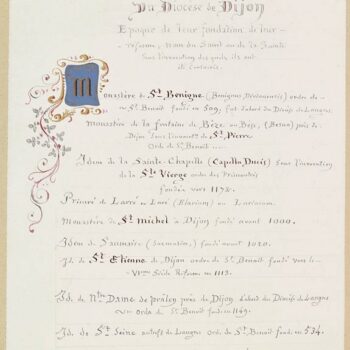 Du Diocèse de Dijon
Epoque de leur fondation de leur
réforme, nom du Saint ou de la Sainte
sous l'invocation des quels ils ont
été consacrés.
Monastère de St Benigne, (Benignus Divionensis) ordre de
St. Benoit fondé en 509, fut d'abord du Diocèse de Langres
monastère de la fontaine de Bèze ou Bèze, (Besua) près de
Dijon sous l'invocat. de St. Pierre
Ordre de St. Benoit
Idem de la Sainte-Chapelle (Capella Ducis) sous l'invocation
de la Ste Vierge ordre des Prémontrés
fondée vers 1172.
Prieuré de Larré ou Laré (Larrium) ou Lariacum.
Monastère de St. michel à Dijon fondé avant 1000.
Idem de Saumaire (Saumaire) fondé avant 1020.
Id. de St. Etienne de Dijon ordre de St. Benoit fondé vers le
VIme Siècle Réformé en 1113.
Id. de Ntre Dame de pralon près de Dijon d'abord du Diocèse de Langres
Ordre de St. Benoit fondé en 1149.
Id. de St. Seine autrefois de Langres ord. de St. Benoit fondé en 534.